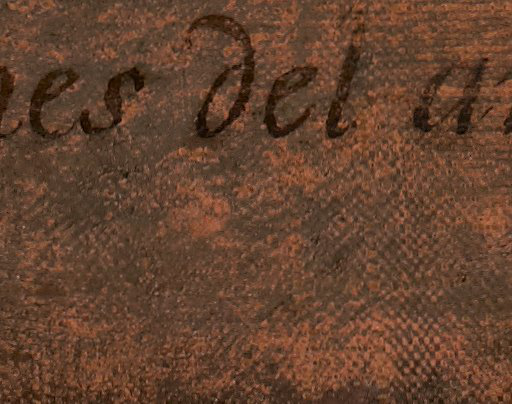 nes del a